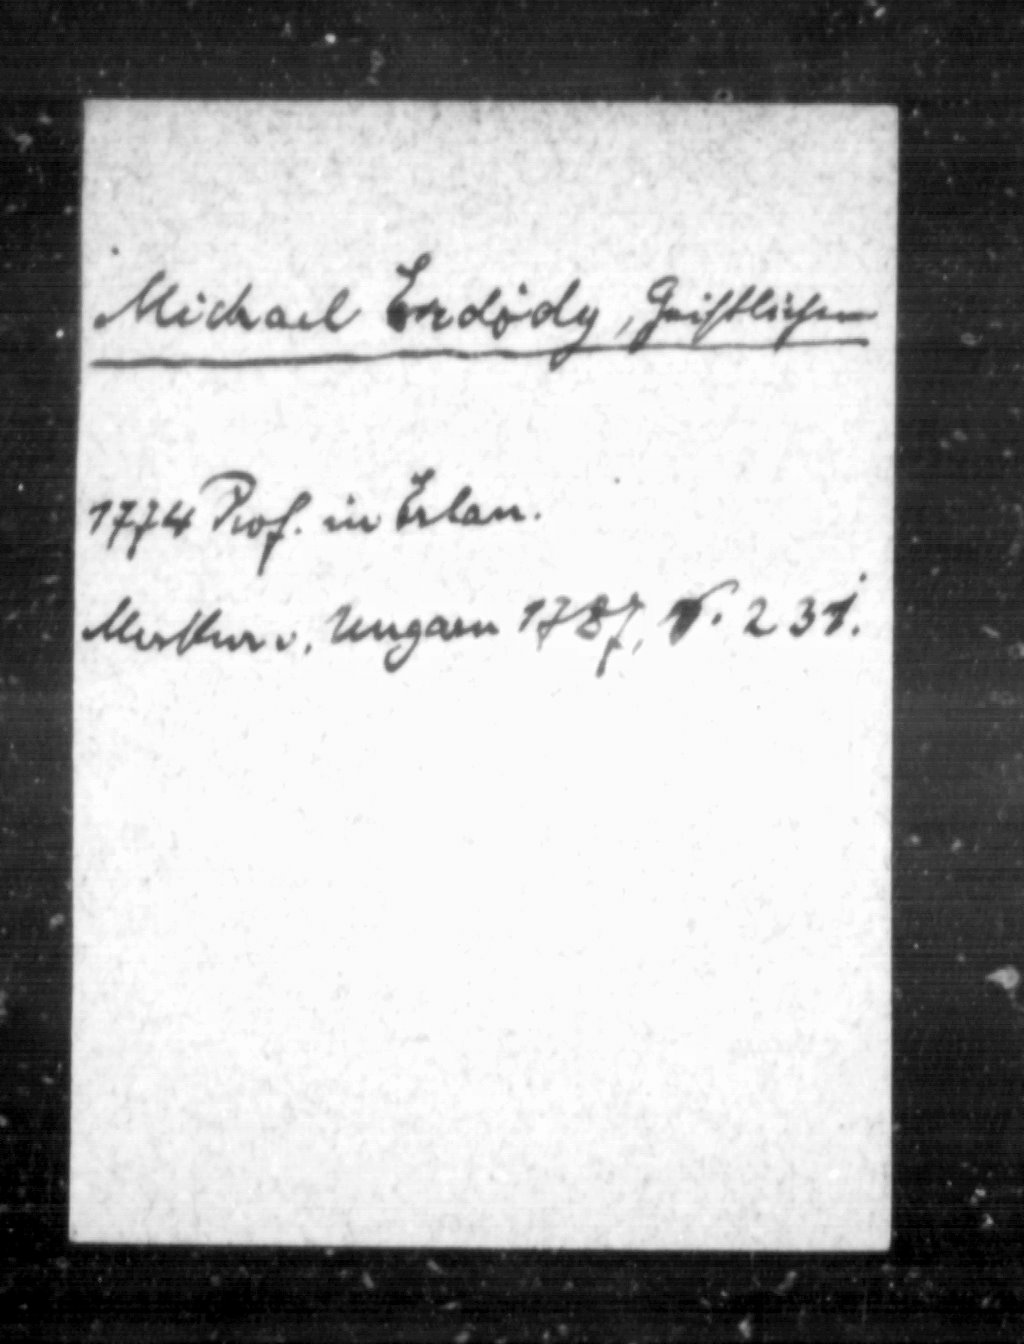 Michael Erdödy, Geistlicher
1774 Prof. in Erlau.
Merkur v. Ungarn 1787, 231.